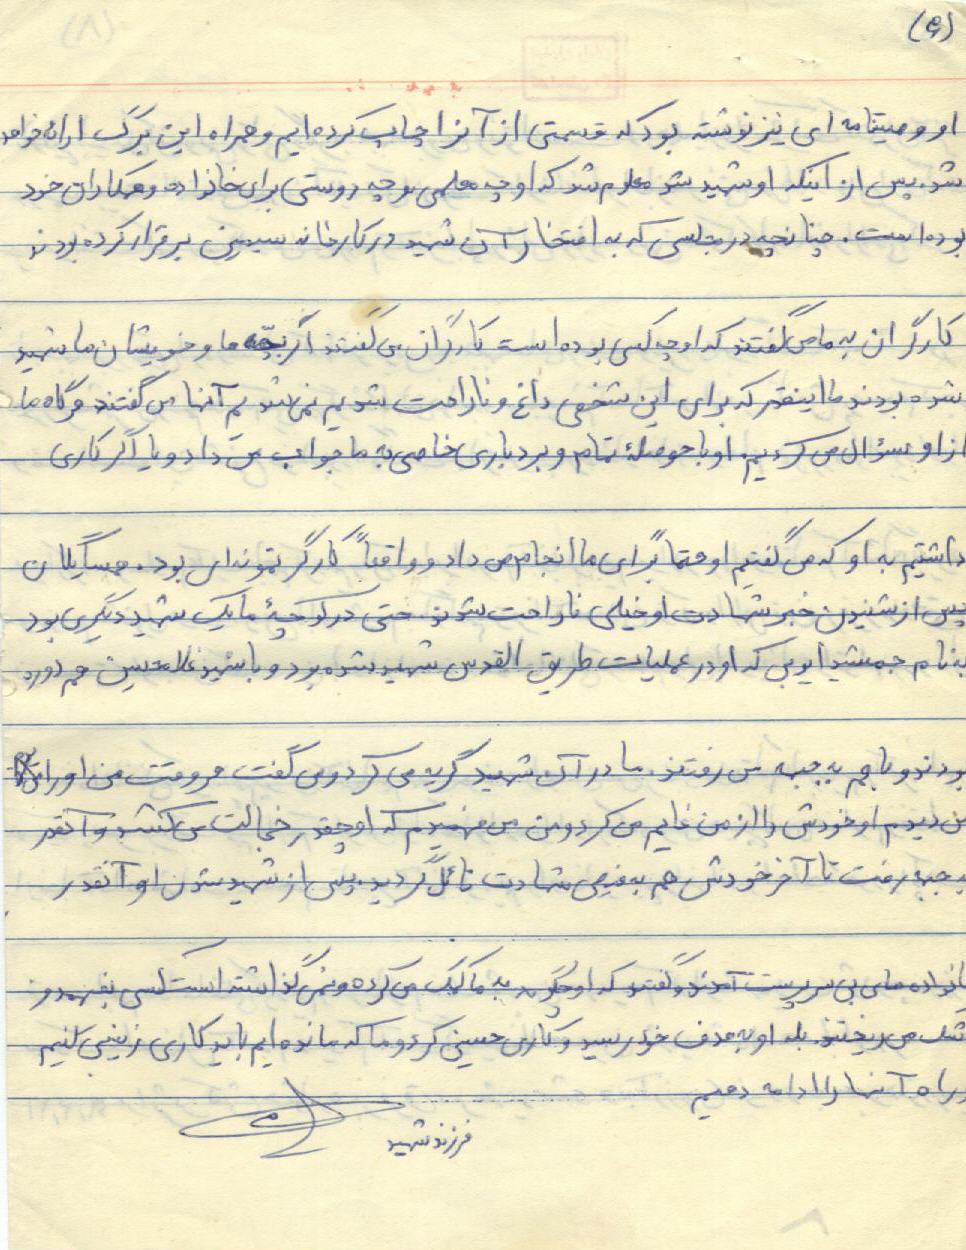 (۹)
او وصیتنامه ای نیز نوشته بود که قسمتی از آنرا چاپ کرده ایم و همراه این برگ ارائه خواهد
شد. پس از اینکه او شهید شد معلوم شد که او چه معلمی و چه دوستی برای خانواده و همکاران خود
بوده است. چنانچه در مجلسی که به افتخار آن شهید در کارخانه سیمین برقرار کرده بودند
کارگران به ما می گفتند که او چه کسی بوده است کارگران می گفتند اگر بچّه ها و خویشان ما شهید
شده بودند ما اینقدر که برای این شخص داغ و ناراحت شدیم نمی شدیم آنها می گفتند هرگاه ما
از او سؤال می کردیم. او با حوصلهٔ تمام و بردباری خاصی به ما جواب می داد و یا اگر کاری
داشتیم به او که می گفتیم او حتماً برای ما انجام می داد و واقعاً کارگر نمونه ای بود. همسایگان
پس از شنیدن خبر شهادت او خیلی ناراحت شدند. حتی در کوچهٔ ما یک شهید دیگری بود
به نام جمشید ایوبی که او در عملیات طریق القدس شهید شده بود و با شهید غلامحسین هم دوره
بودند و با هم به جبهه می رفتند. مادر آن شهید گریه می کرد و می گفت هر وقت من او را
می دیدم او خودش را از من غایم می کرد و من می فهمیدم که او چقدر خجالت می کشید و آنقدر
به جبهه رفت تا آخر خودش هم به فیض شهادت نائل گردید. پس از شهید شدن او آنقدر
خانواده های بی سرپرست آمدند و گفتند که او چگونه به ما کمک می کرده و نمی گذاشته است کسی بفهمد و
اشک می ریختند. بله او به هدف خود رسید و کاری حسینی کرد و ما که مانده ایم باید کاری زینبی کنیم
و راه آنها را ادامه دهیم
فرزند شهید